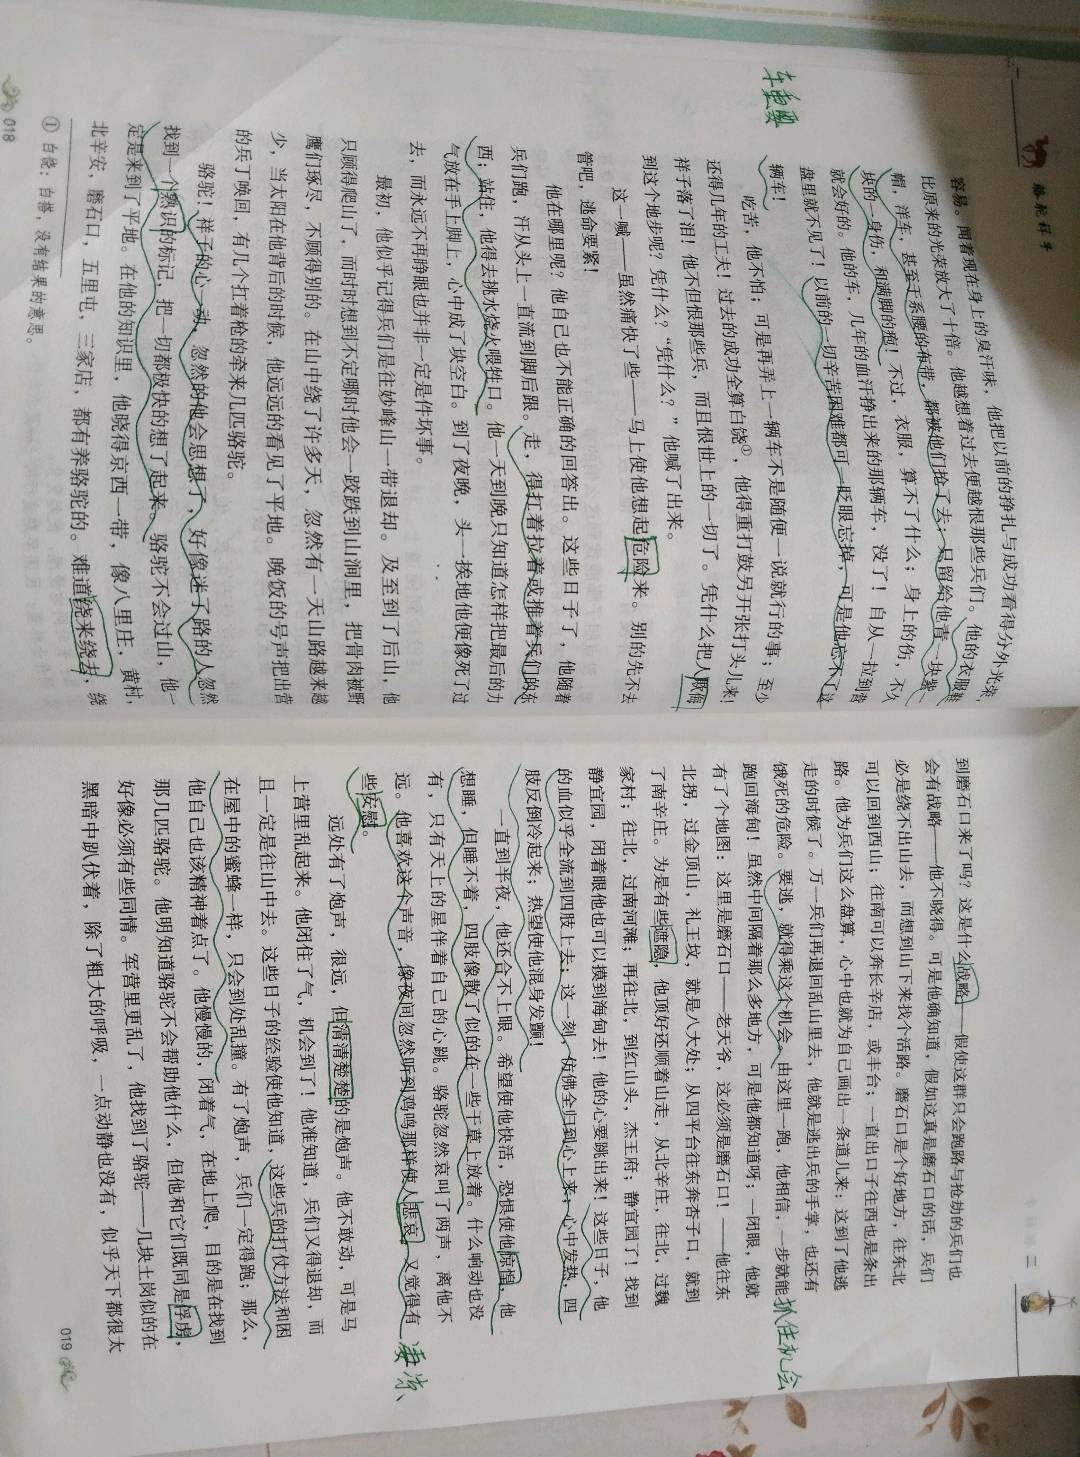 骆驼祥子
容易。闻着现在身上的臭汗味，他把以前的挣扎与成功看得分外光荣，
比原来的光荣放大了十倍。他越想着过去便越恨那些兵们。他的衣服鞋
帽，洋车，甚至于系腰的布带，都被他们抢了去；只留给他青一块紫一
块的一身伤，和满脚的疱！不过，衣服，算不了什么；身上的伤，不久
就会好的。他的车，几年的血汗挣出来的那辆车，没了！自从一拉到营
盘里就不见了！以前的一切辛苦困难都可一眨眼忘掉，可是他忘不了这
辆车！
车重要
吃苦，他不怕；可是再弄上一辆车不是随便一说就行的事；至少
还得几年的工夫！过去的成功全算白饶①，他得重打鼓另开张打头儿来！
样子落了泪！他不但恨那些兵，而且恨世上的一切了。凭什么把人欺侮
到这个地步呢？凭什么？“凭什么？”他喊了出来。
这一喊——虽然痛快了些——马上使他想起危险来。别的先不去
管吧，逃命要紧！
他在哪里呢？他自己也不能正确的回答出。这些日子了，他随着
兵们跑，汗从头上一直流到脚后跟。走，得扛着拉着或推着兵们的东
西；站住，他得去挑水烧火喂牲口。他一天到晚只知道怎样把最后的力
气放在手上脚上，心中成了块空白。到了夜晚，头一挨地他便像死了过
去，而永远不再睁眼也并非一定是件坏事。
最初，他似乎记得兵们是往妙峰山一带退却。及至到了后山，他
只顾得爬山了，而时时想到不定哪时他会一跤跌到山涧里，把骨肉被野
鹰们啄尽，不顾得别的。在山中绕了许多天，忽然有一天山路越来越
少，当太阳在他背后的时候，他远远的看见了平地。晚饭的号声把出营
的兵丁唤回，有几个扛着枪的牵来几匹骆驼。
骆驼！样子的心一动，忽然的他会思想了，好像迷了路的人忽然
找到一个熟识的标记，把一切都极快的想了起来。骆驼不会过山，他一
定是来到了平地。在他的知识里，他晓得京西一带，像八里庄，黄村，
北辛安，磨石口，五里屯，三家店，都有养骆驼的。难道绕来绕去，绕
① 白饶：白搭，没有结果的意思。
018
二
到磨石口来了吗？这是什么战略——假使这群只会跑路与抢劫的兵们也
会有战略——他不晓得。可是他确知道，假如这真是磨石口的话，兵们
必是绕不出山去，而想到山下来找个活路。磨石口是个好地方，往东北
可以回到西山；往南可以奔长辛店，或丰台；一直出口子往西也是条出
路。他为兵们这么盘算，心中也就为自己画出一条道儿来：这到了他逃
走的时候了。万一兵们再退回乱山里去，他就是逃出兵的手掌，也还有
饿死的危险。要逃，就得乘这个机会。由这里一跑，他相信，一步就能
抓住机会
跑回海甸！虽然中间隔着那么多地方，可是他都知道呀；一闭眼，他就
有了个地图：这里是磨石口——老天爷，这必须是磨石口！——他往东
北拐，过金顶山，礼王坟，就是八大处；从四平台往东奔杏子口，就到
了南辛庄。为是有些遮隐，他顶好还顺着山走，从北辛庄，往北，过魏
家村；往北，过南河滩；再往北，到红山头，杰王府；静宜园了！找到
静宜园，闭着眼他也可以摸到海甸去！他的心要跳出来！这些日子，他
的血似乎全流到四肢上去；这一刻，仿佛全归到心上来；心中发热，四
肢反倒冷起来；热望使他混身发颤！
一直到半夜，他还合不上眼。希望使他快活，恐惧使他惊惶，他
想睡，但睡不着，四肢像散了似的在一些干草上放着。什么响动也没
有，只有天上的星伴着自己的心跳。骆驼忽然哀叫了两声，离他不
远。他喜欢这个声音，像夜间忽然听到鸡鸣那样使人悲哀，又觉得有
凄凉
些安慰。
远处有了炮声，很远，但清清楚楚的是炮声。他不敢动，可是马
上营里乱起来。他闭住了气，机会到了！他准知道，兵们又得退却，而
且一定是往山中去。这些日子的经验使他知道，这些兵的打仗方法和困
在屋中的蜜蜂一样，只会到处乱撞。有了炮声，兵们一定得跑；那么，
他自己也该精神着点了。他慢慢的，闭着气，在地上爬，目的是在找到
那几匹骆驼。他明知道骆驼不会帮助他什么，但他和它们既同是俘虏，
好像必须有些同情。军营里更乱了，他找到了骆驼——几块土岗似的在
黑暗中趴伏着，除了粗大的呼吸，一点动静也没有，似乎天下都很太
019